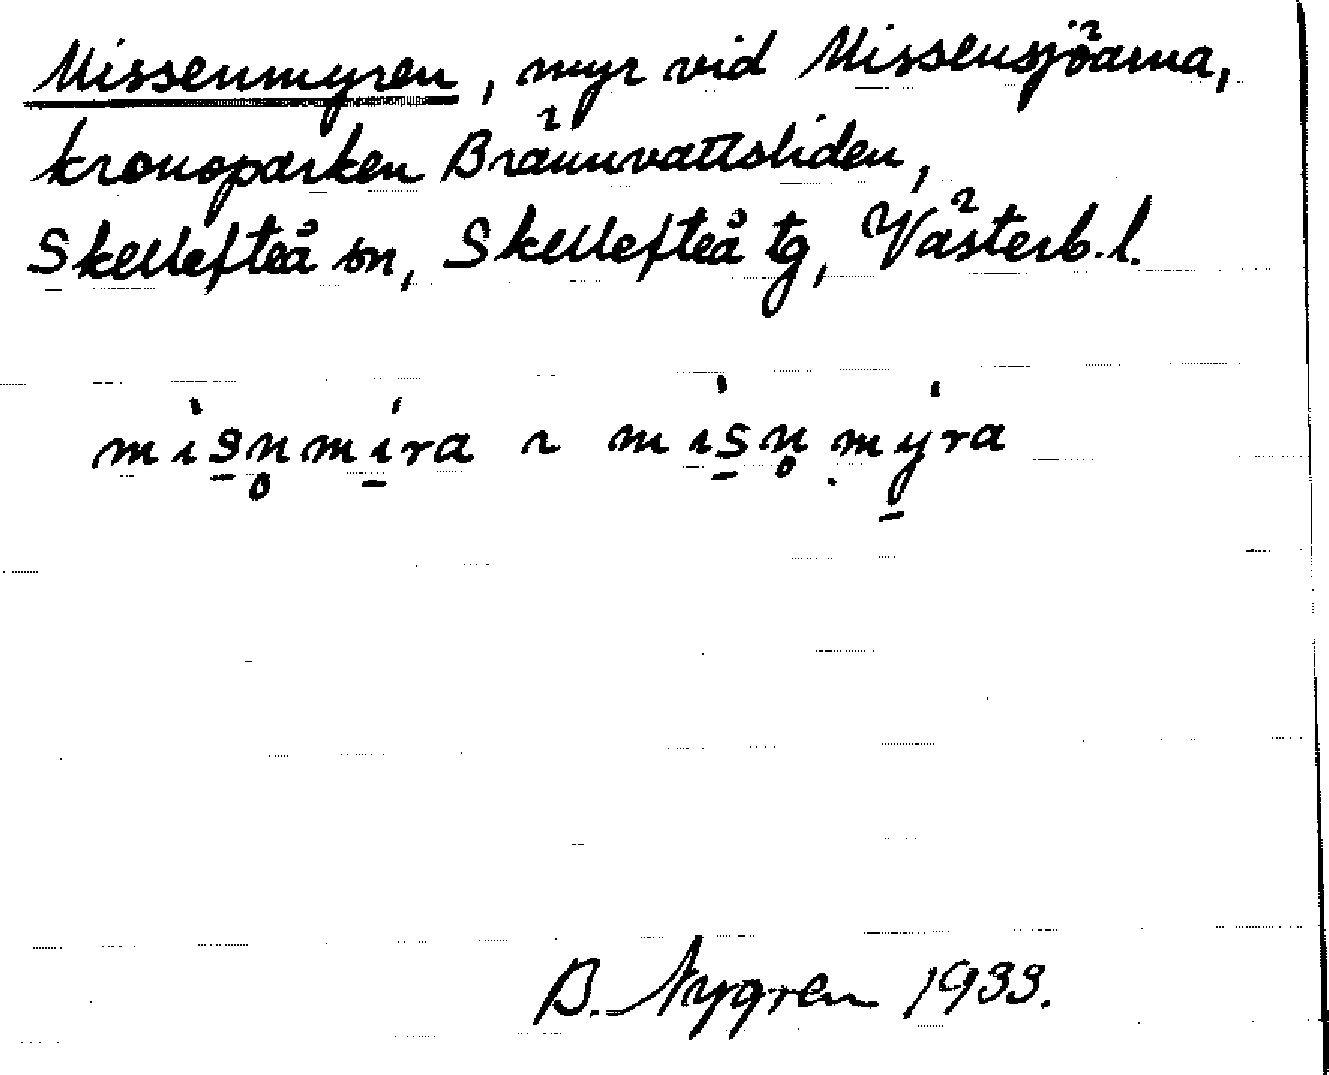 Missenmyren, myr vid Missensjöarna,
kronoparken Brännvattsliden,
Skellefteå sn, Skellefteå tg, Västerb. l.
mìs̱n̥mí̱ra ~ mìs̱n̥mý̱ra
B. Nygren 1933.